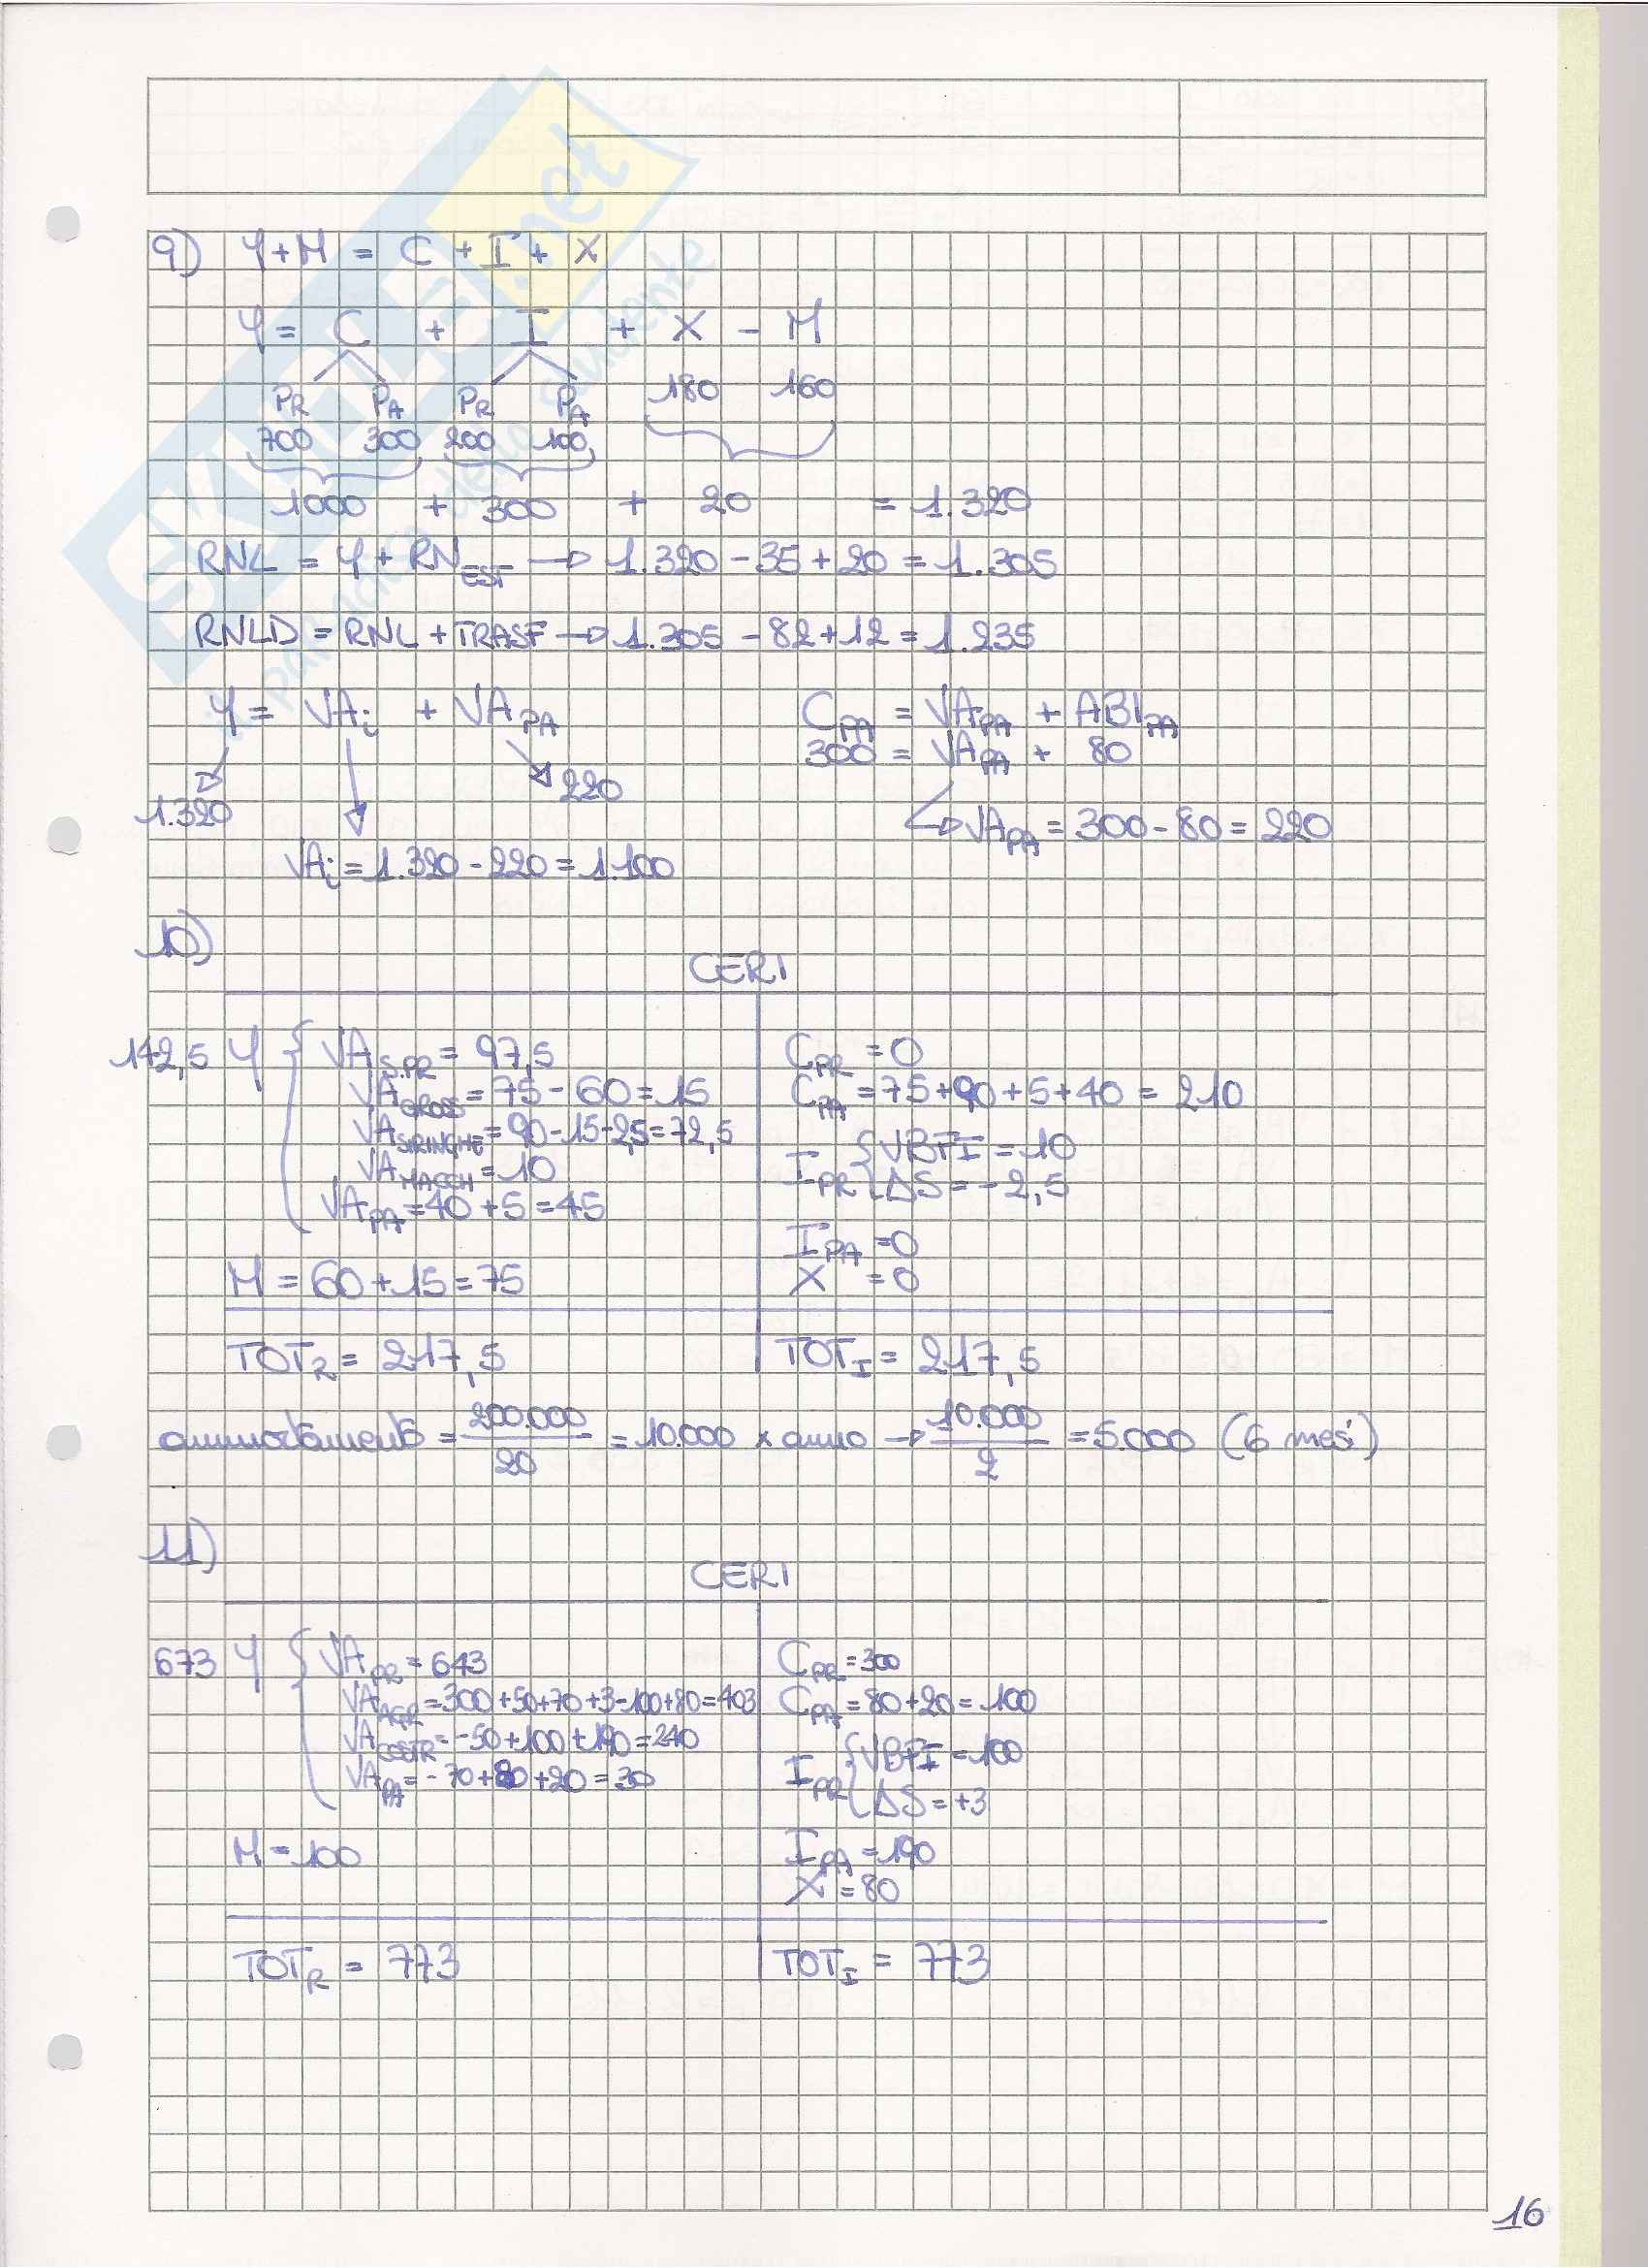 9) Y+M = C + I + X
Y = C + I + X - M
PR PA PR PA 180 160
700 300 200 100
1000 + 300 + 20 = 1.320
RNL = Y + RN EST → 1.320 - 35 + 20 = 1.305
RNLD = RNL + TRASF → 1.305 - 82 + 12 = 1.235
Y = VAi + VAPA
CPA = VAPA + ABIPA
300 = VAPA + 80
220
1.320
VAPA = 300 - 80 = 220
VAi = 1.320 - 220 = 1.100
10)
CERI
142,5 Y { VA S.PR = 97,5
VA GROSS = 75 - 60 = 15
VA SIRINGHE = 90 - 15 - 2,5 = 72,5
VA MACCH = 10
VAPA = 40 + 5 = 45
M = 60 + 15 = 75
TOTR = 217,5
CPR = 0
CPA = 75 + 90 + 5 + 40 = 210
IPR { VBFI = 10
ΔS = - 2,5
IPA = 0
X = 0
TOTI = 217,5
ammortamento = 200.000/20 = 10.000 x anno → 10.000/2 = 5.000 (6 mesi)
11)
CERI
673 Y { VAPR = 643
VAAGR = 300 + 50 + 70 + 3 - 100 + 80 = 403
VACOSTR = - 50 + 100 + 190 = 240
VAPA = - 70 + 80 + 20 = 30
M = 100
TOTR = 773
CPR = 300
CPA = 80 + 20 = 100
IPR { VBFI = 100
ΔS = + 3
IPA = 190
X = 80
TOTI = 773
16
SKUOLA.net